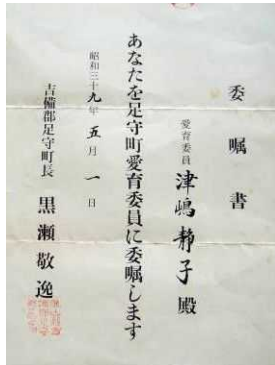 委嘱書
愛育委員 津嶋静子殿
あなたを足守町愛育委員に委嘱します
昭和三十九年五月一日
吉備郡足守町長 黒瀬敬逸